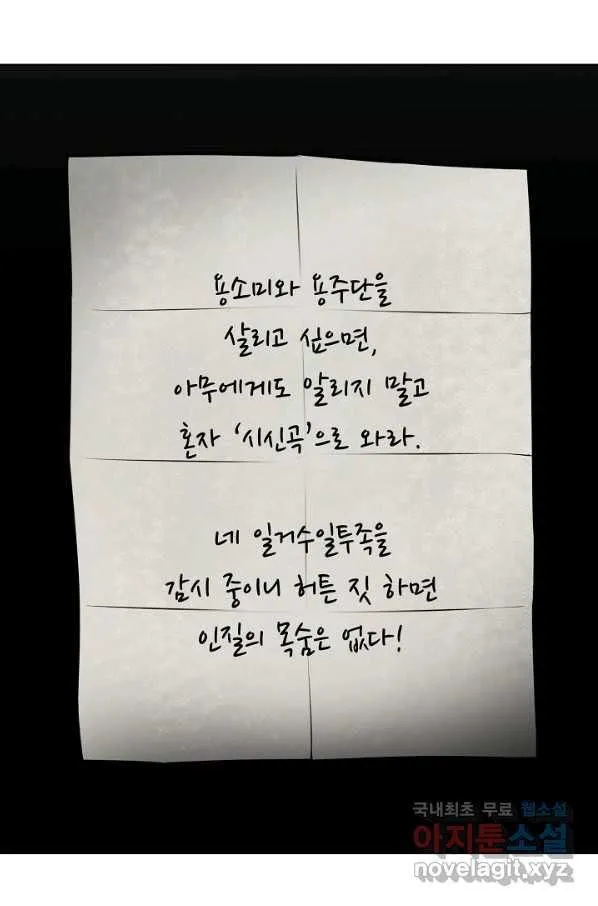 용소미와 용주단을
살리고 싶으면,
아무에게도 알리지 말고
혼자 '시신곡'으로 와라.
네 일거수일투족을
감시 중이니 허튼 짓 하면
인질의 목숨은 없다!
국내최초 무료 웹소설
아지툰소설
novelagit.xyz